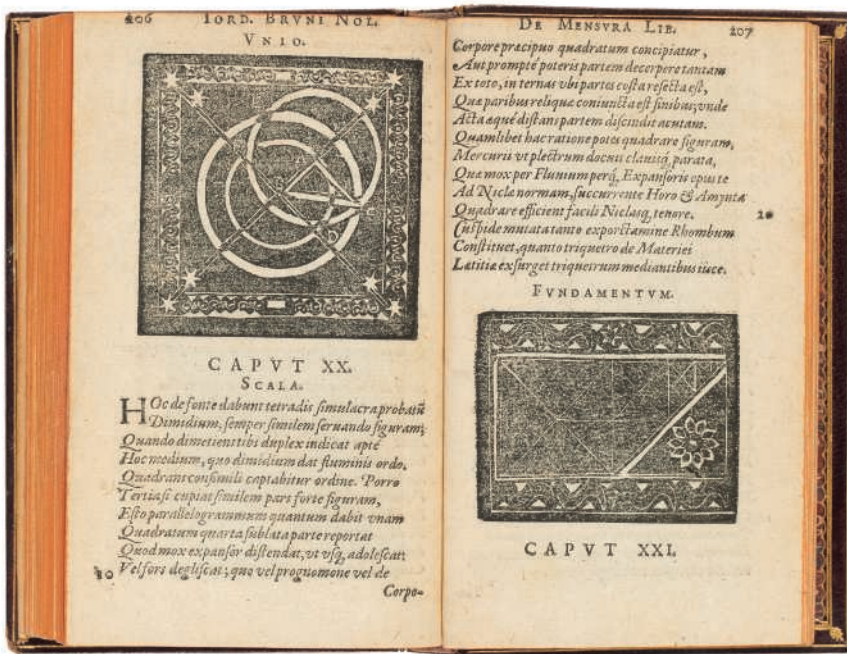 206 IORD. BRVNI NOL.
VNIO.
CAPVT XX.
SCALA.
HOc de fonte dabunt tetradis simulacra probatū
Dimidium, semper similem seruando figuram;
Quando dimetientibs duplex indicat aptè
Hoc medium, quo dimidium dat fluminis ordo.
Quadrans consimili captabitur ordine. Porro
Tertia si cupiat similem pars forte figuram,
Esto parallelogrammum quantum dabit vnam
Quadratum quarta sublata parte reportat
Quod mox expansor distendat, vt vsq, adolescat;
10 Vel fors degliscat; quo vel prognomone vel de
Corpo-
DE MENSVRA LIB. 207
Corpore præcipuo quadratum concipiatur,
Aut promptè poteris partem decerpere tantam
Ex toto, in ternas vbi partes costa resecta est,
Quæ paribus reliquæ coniuncta est finibus; vnde
Acta æquè distans partem discindit acutam.
Quamlibet hac ratione potes quadrare figuram,
Mercurii vt plectrum docuit clauisq, parata,
Quæ mox per Fluuium perq, Expansoris opus te
Ad Niclæ normam, succurrente Horo & Amynta
Quadrare efficient facili Niclasq, tenore. 20
Cuspide mutata tanto exporrectamine Rhombum
Constituet, quanto triquetro de Materiei
Lætitiæ exsurget triquetrum mediantibus iuce.
FVNDAMENTVM.
CAPVT XXI.